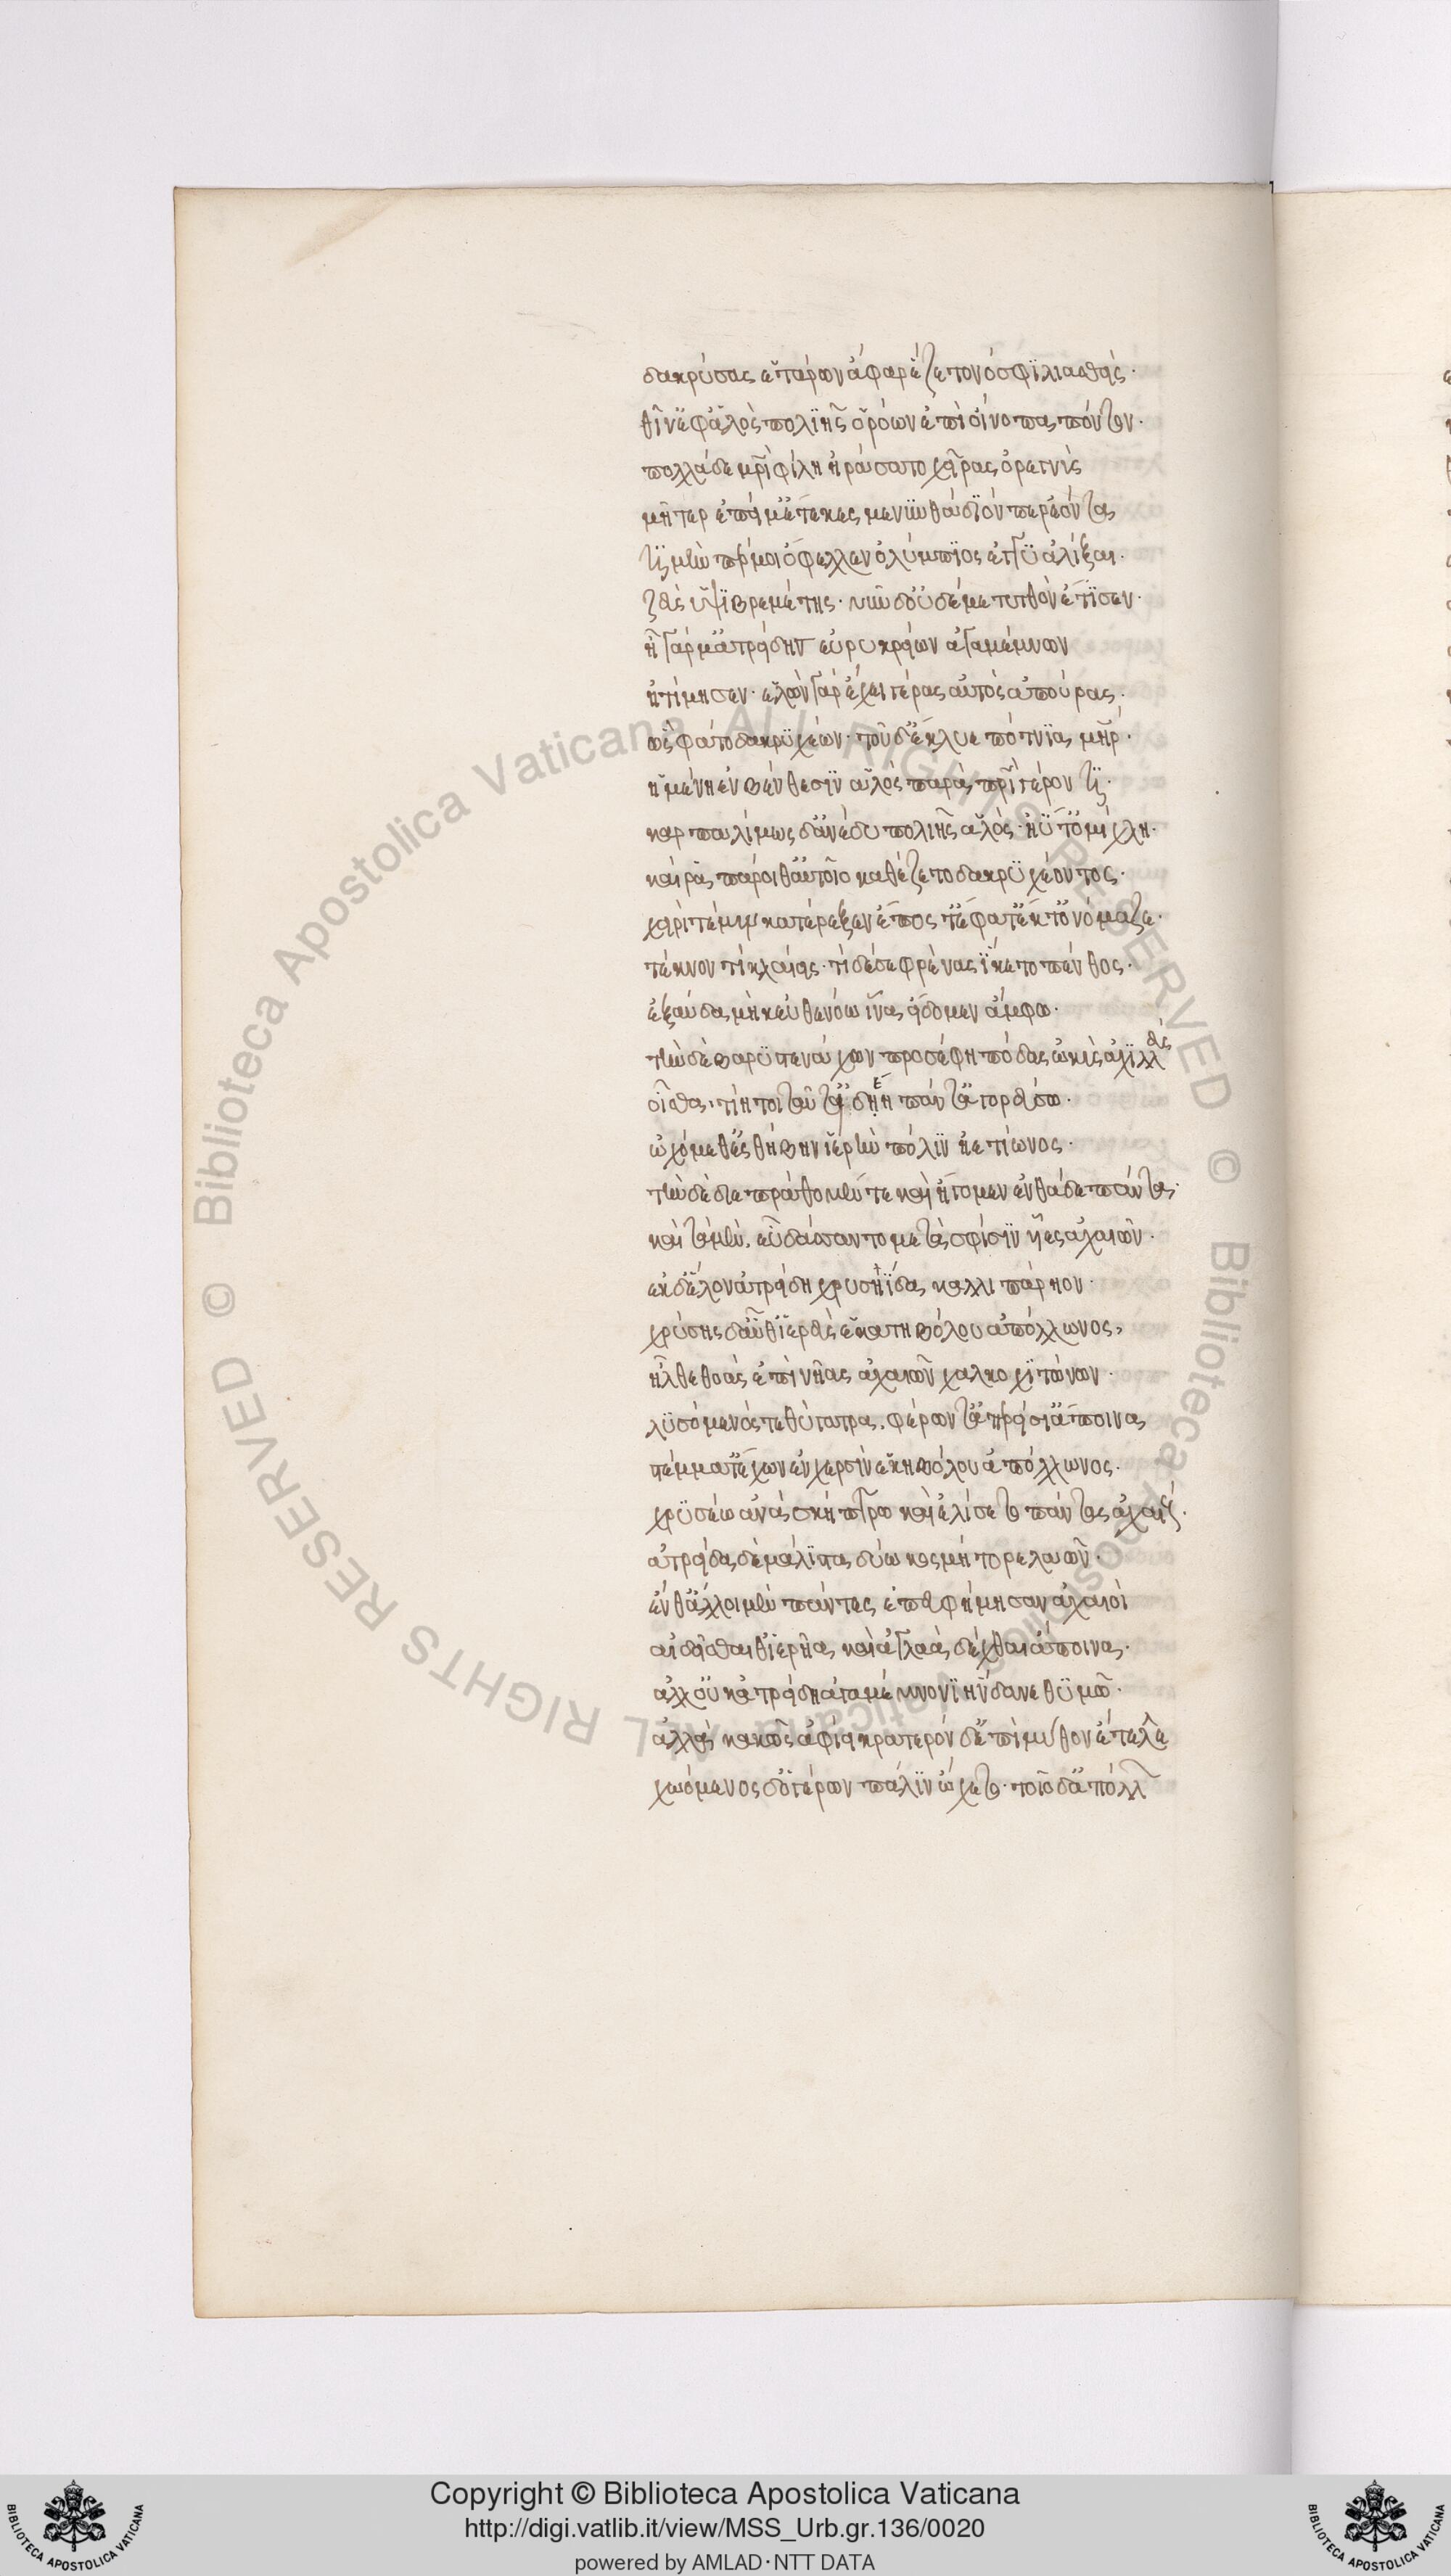 δακρύσας ἑτάρων ἄφαρ ἕζετο νόσφϊ λιασθείς·
θῖν' ἔφ' ἁλὸς πολϊῆς ὁρόων ἐπὶ οἴνοπα πόντον·
πολλὰ δὲ μητρὶ φίλη ἠράσατο χεῖρας ὀρεγνὺς
μῆτερ ἐπεί μ' ἔτεκες μενϋνθάδϊόν περ ἐόντα
τϊμήν πέρ μοι ὄφελλεν ὀλύμπϊος ἐγγϋαλίξαι·
ζεὺς ὑψϊβρεμέτης· νῦν δ' οὐδέ με τυτθὸν ἔτϊσεν·
ἦ γάρ μ' ἀτρείδης εὐρυκρείων ἀγαμέμνων
ἠτίμησεν· ἑλὼν γὰρ ἔχει γέρας αὐτὸς ἀπούρας·
ὣς φάτο δακρϋχέων· τοῦ δ' ἔκλυε πότνϊα μήτηρ·
ἡμένη ἐν βένθεσϊν ἁλὸς παρὰ πατρὶ γέροντϊ·
καρπαλίμως δ' ἀνέδυ πολιῆς ἁλὸς· ἠΰτ' ὀμίχλη·
καί ῥα πάροιθ' αὐτοῖο καθέζετο δακρϋχέοντος·
χειρί τέ μιν κατέρεξεν ἔπος τ' ἔφατ' ἔκ τ' ὀνόμαζε·
τέκνον τί κλαίεις· τί δέ σε φρένας ἵκετο πένθος·
ἐξαύδα μὴ κεῦθε νόω ἵνα εἴδομεν ἄμφω·
τὴν δὲ βαρϋστενάχων προσέφη πόδας ὠκὺς ἀχϊλλεύς
οἶσθα· τίη τοι ταῦτα εἰδυίη πάντ' ἀγορεύσω·
ᾠχόμεθ' ἐς θήβην ἱερὴν πόλϊν ἠετίωνος·
τὴν δὲ διεπράθομέν τε καὶ ἤγομεν ἐνθάδε πάντα·
καὶ τὰ μὲν εὖ δάσαντο μετὰ σφίσϊν υἷες ἀχαιῶν·
ἐκ δ' ἕλον ἀτρείδη χρυσηΐδα καλλιπάρηον·
χρύσης δ' αὖθ' ἱερεὺς ἑκατηβόλου ἀπόλλωνος,
ἦλθε θοὰς ἐπὶ νῆας ἀχαιῶν χαλκοχϊτώνων·
λϋσόμενός τε θύγατρα, φέρων τ' ἀπερείσι' ἄποινα
στέμματ' ἔχων ἐν χερσὶν ἑκηβόλου ἀπόλλωνος·
χρϋσέω ἀνὰ σκήπτρω καὶ ἐλίσετο πάντας ἀχαιούς·
ἀτρείδα δὲ μάλϊστα δύω κοσμήτορε λαῶν·
ἔνθ' ἄλλοι μὲν πάντες ἐπευφήμησαν ἀχαιοὶ
αἰδεῖσθαι θ' ἱερῆα καὶ ἀγλαὰ δέχθαι ἄποινα·
ἀλλ' οὐκ ἀτρείδη ἀγαμέμνονϊ ἥνδανε θϋμῶ·
ἀλλὰ κακῶς ἀφίει κρατερὸν δ' ἐπὶ μῦθον ἔτελλε
χωόμενος δ' ὁ γέρων πάλϊν ᾤχετο· τοῖο δ' ἀπόλλων
Copyright © Biblioteca Apostolica Vaticana
http://digi.vatlib.it/view/MSS_Urb.gr.136/0020
powered by AMLAD·NTT DATA